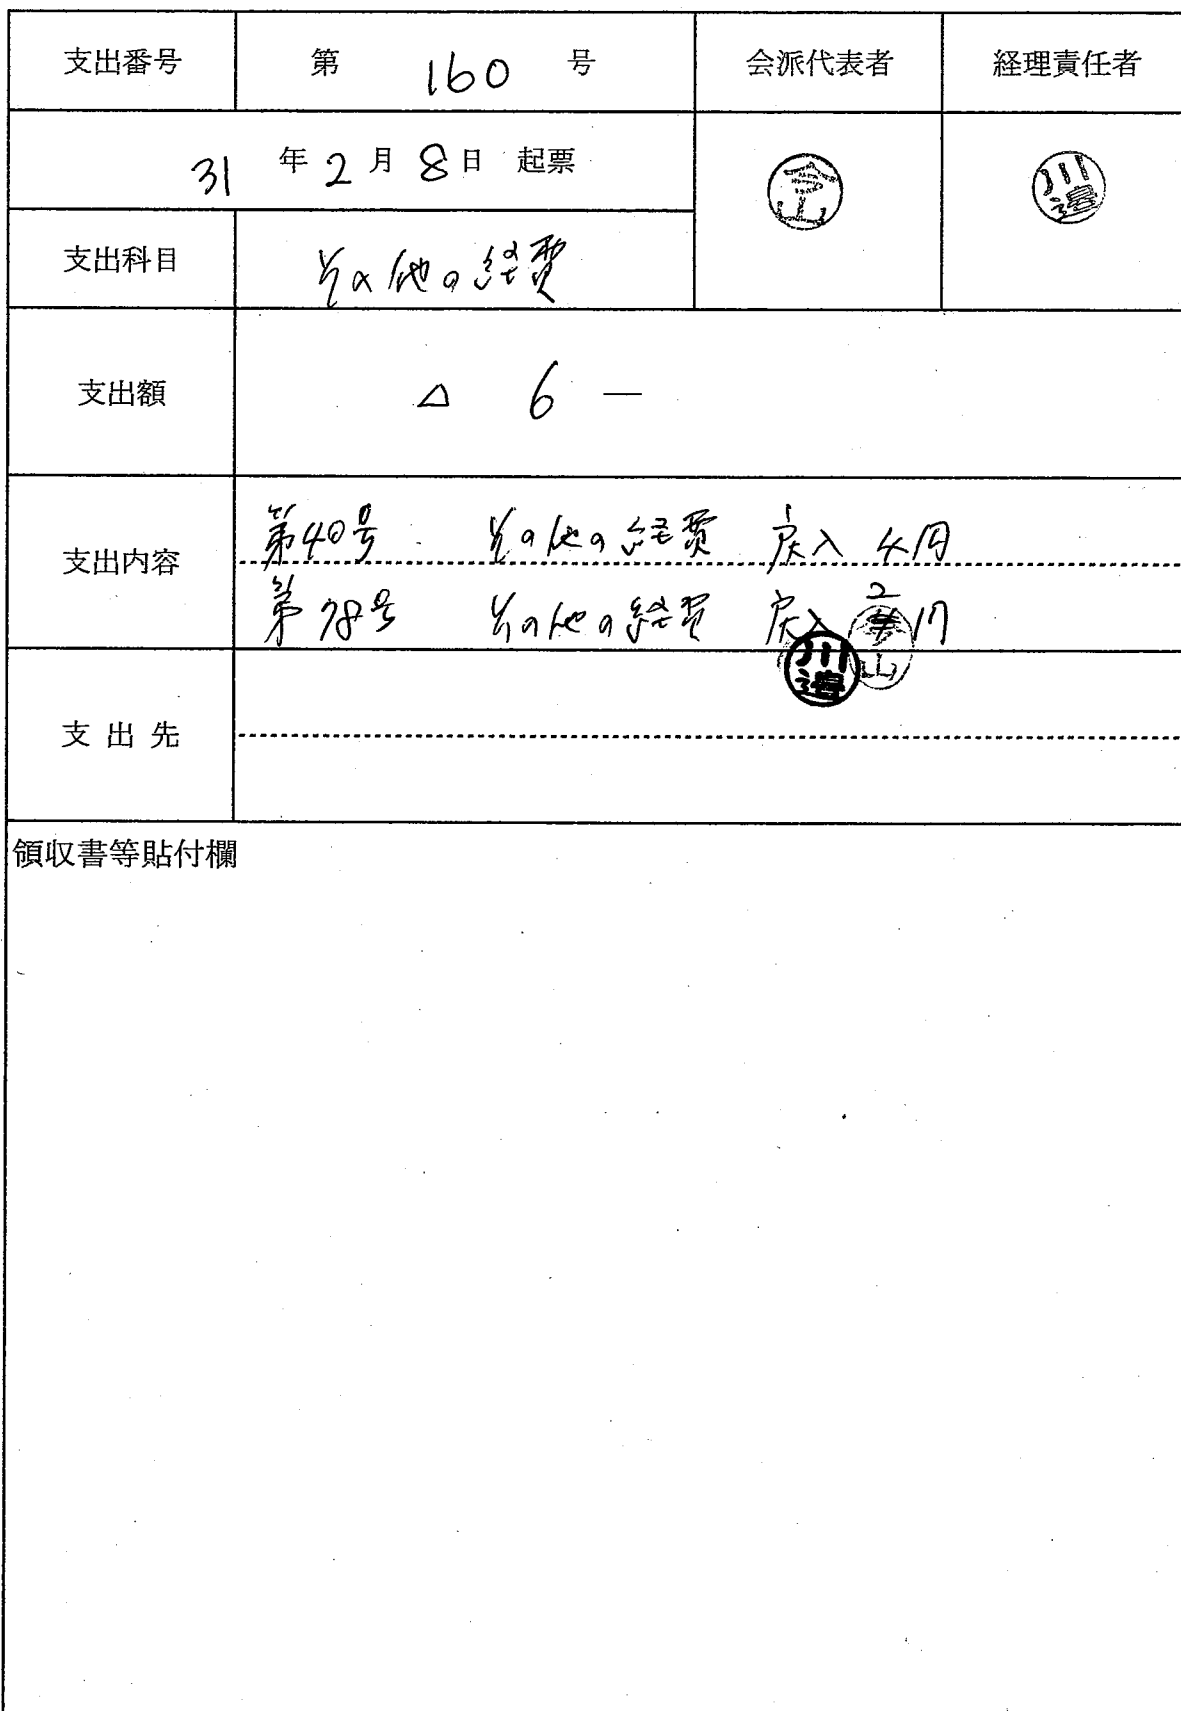 支出番号 第 160 号 会派代表者 経理責任者
31 年 2 月 8 日 起票
今山 川邉
支出科目 その他の経費
支出額 △ 6 ―
支出内容 第40号 その他の経費 戻入 4円
第78号 その他の経費 戻入 2円
川邉
支出先
領収書等貼付欄